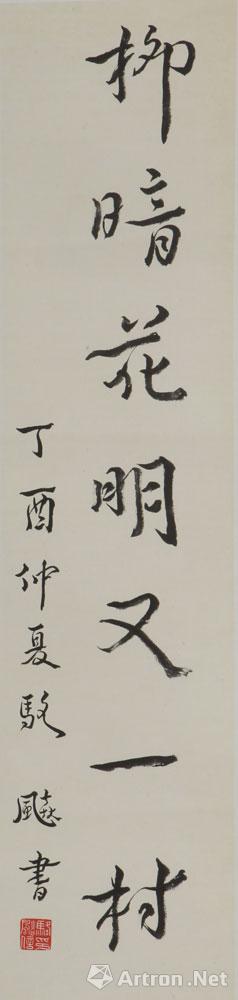 柳暗花明又一村
丁酉仲夏駱飚書
Artron.Net